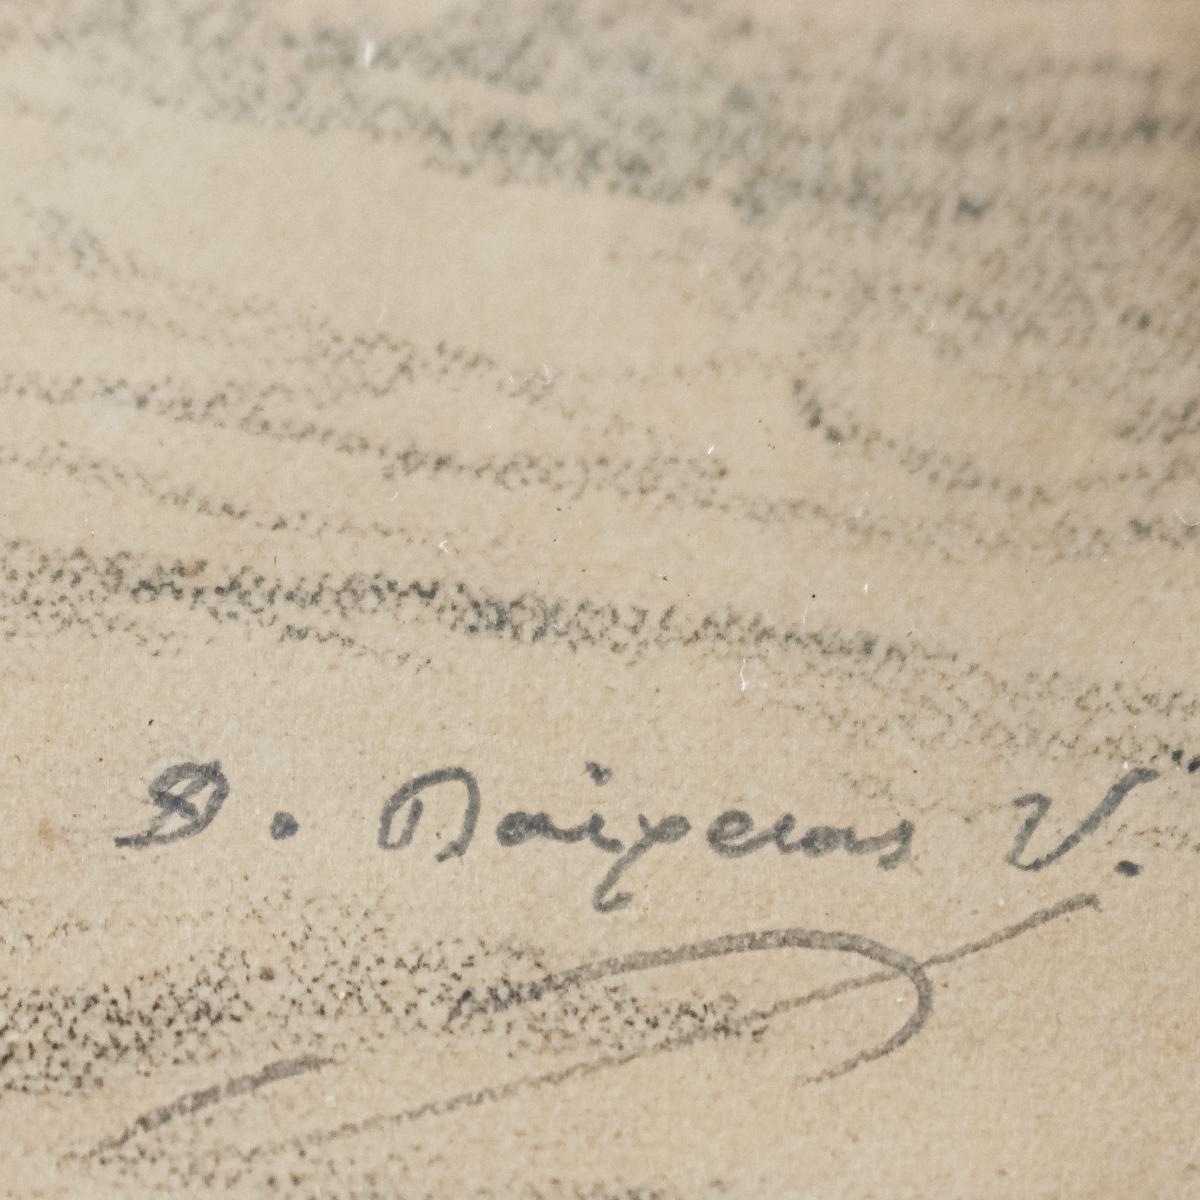 D. Baixeras V.